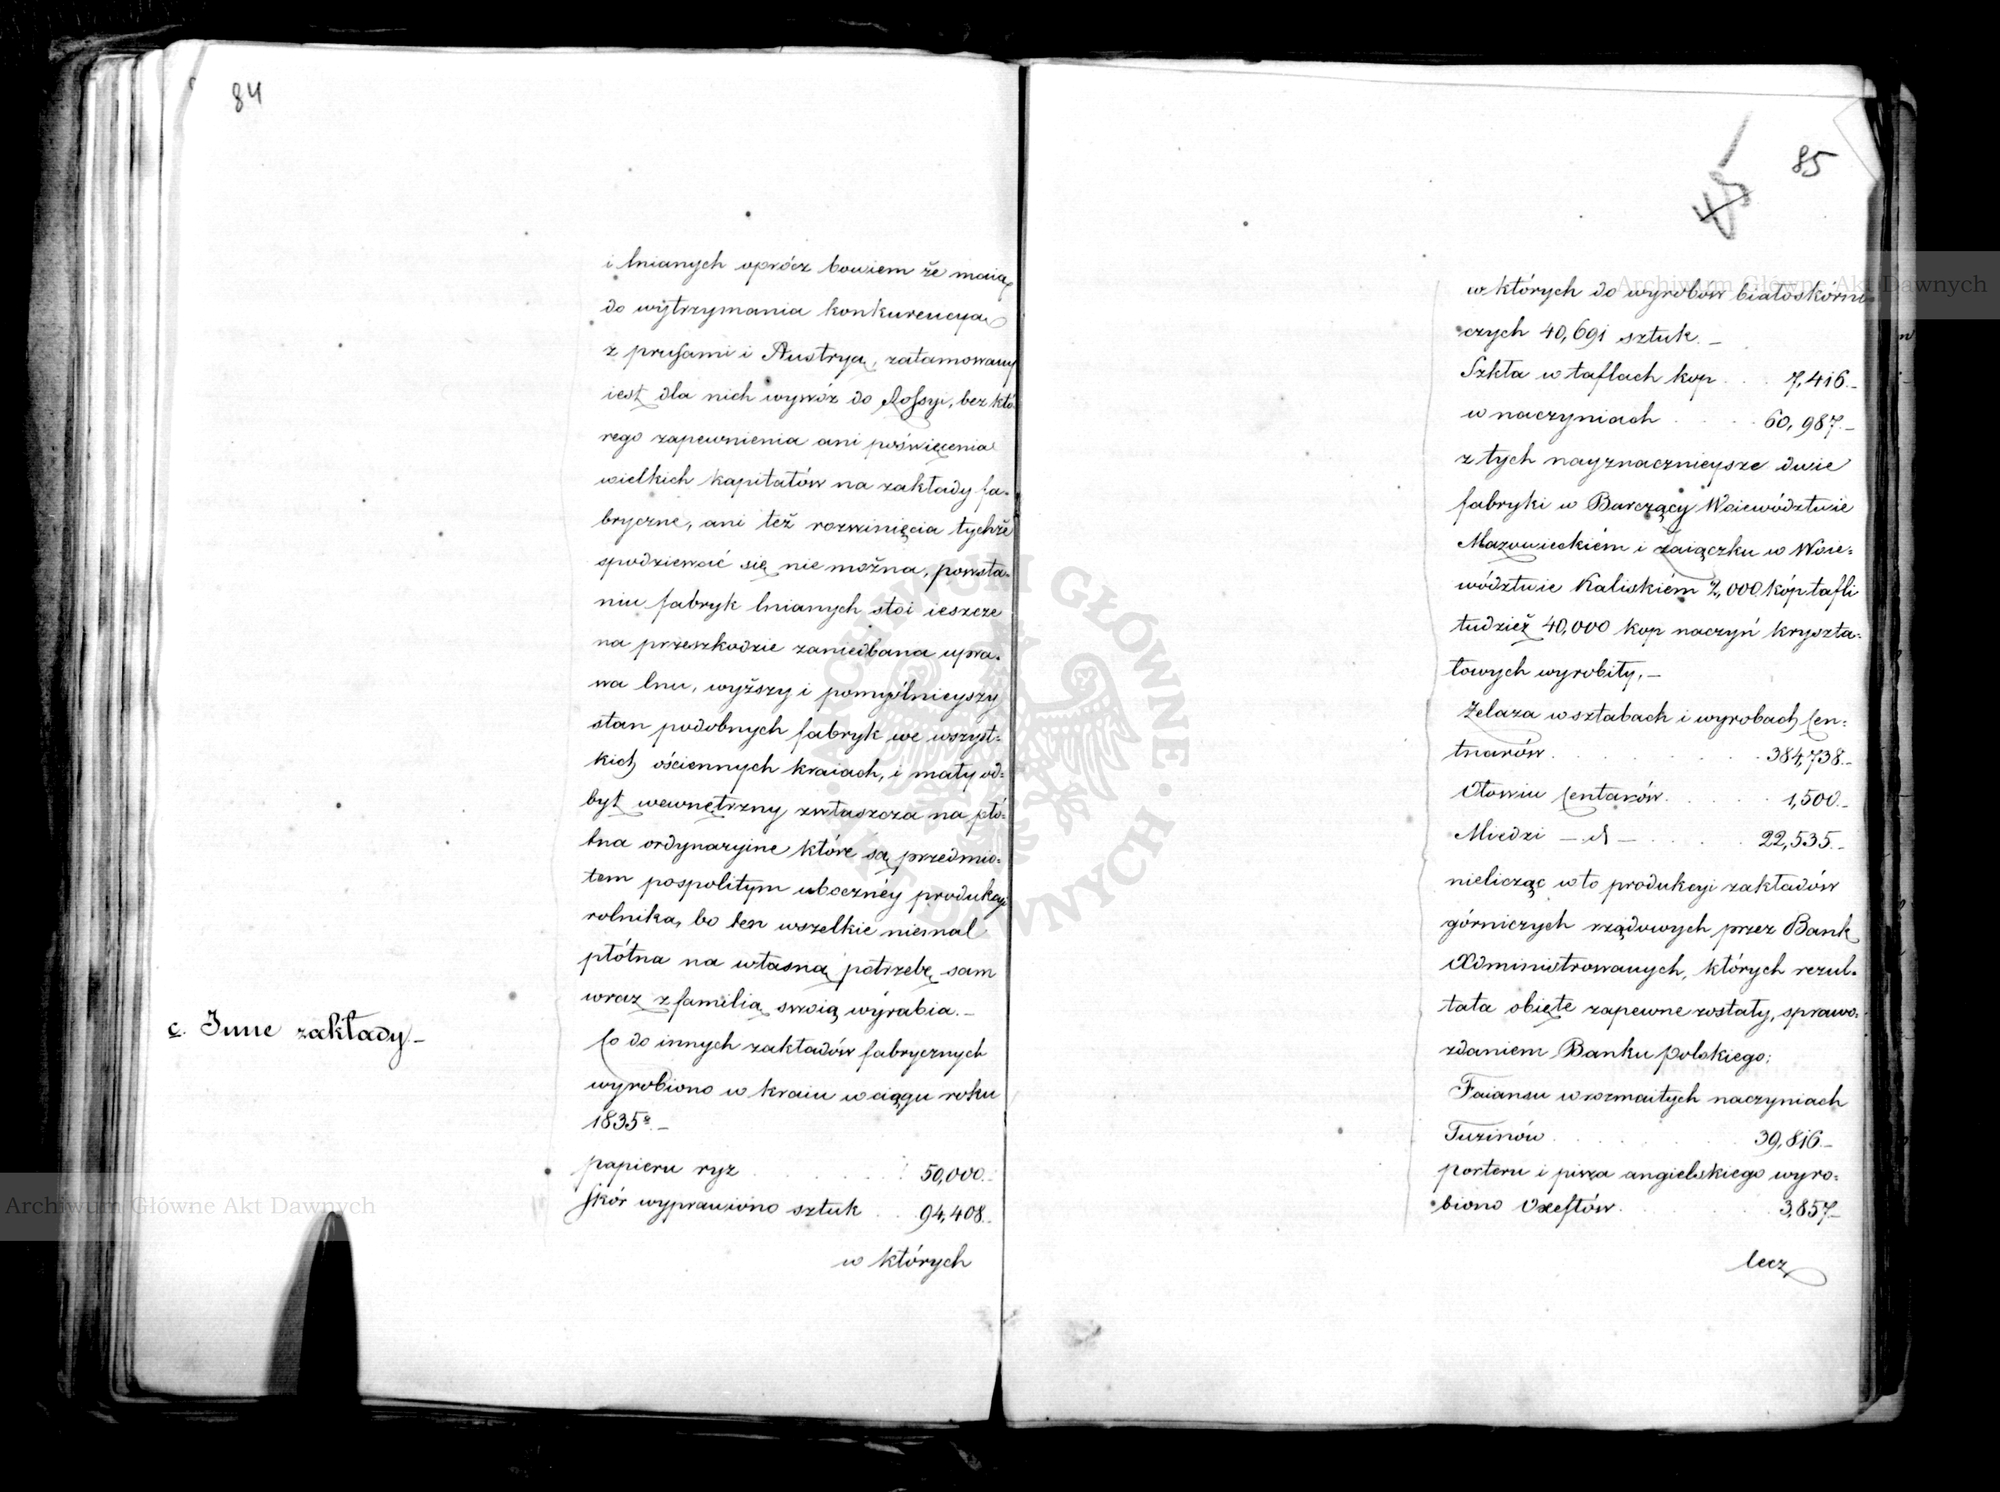 84
i lnianych oprócz bowiem że maią
do wytrzymania konkurencyą
z prusami i Austryą, zatamowany
iest dla nich wywóz do Rossyi, bez któ-
rego zapewnienia ani poświęcenia
wielkich kapitałów na zakłady fa-
bryczne, ani też rozwinięcia tychże
spodziewać się nie można, powsta-
niu fabryk lnianych stoi ieszcze
na przeszkodzie zaniedbana upra-
wa lnu, wyższy i pomyślnieyszy
stan podobnych fabryk we wszyst-
kich ościennych kraiach, i mały od-
byt wewnętrzny zwłaszcza na płó-
tna ordynaryine które są przedmio-
tem pospolitym uboczney produkcyi
rolnika, bo ten wszelkie niemal
płótna na własną potrzebę sam
wraz z familią swoią wyrabia.-
c. Inne zakłady.-
Co do innych zakładów fabrycznych
wyrobiono w kraiu w ciągu roku
1835 r.-
papieru ryz . . . . . 50,000.-
skór wyprawiono sztuk . . 94,408.-
w których
85
w których do wyrobów białoskórni-
czych 40,691 sztuk.-
Szkła w taflach kop . . . 7,416.-
w naczyniach . . . . 60,987.-
z tych nayznacznieysze dwie
fabryki w Barczący Woiewództwie
Mazowieckiém i Zaiączku w Woie-
wództwie Kaliskiém 2,000 kóp tafli
tudzież 40,000 kop naczyń kryszta-
łowych wyrobiły.-
Żelaza w sztabach i wyrobach Cen-
tnarów . . . . . . 384,738.-
Ołowiu Centarów . . . . 1,500.-
Miedzi - d - . . . . 22,535.-
nielicząc w to produkcyi zakładów
górniczych rządowych przez Bank
Administrowanych, których rezul-
tata obięte zapewne zostały, sprawo-
zdaniem Banku polskiego;
Faiansu w rozmaitych naczyniach
Tuzinów . . . . . . 39,816.-
porteru i piwa angielskiego wyro-
biono Oxeftów . . . . . 3,857.-
lecz
Archiwum Główne Akt Dawnych
Archiwum Główne Akt Dawnych
ARCHIWUM GŁÓWNE AKT DAWNYCH